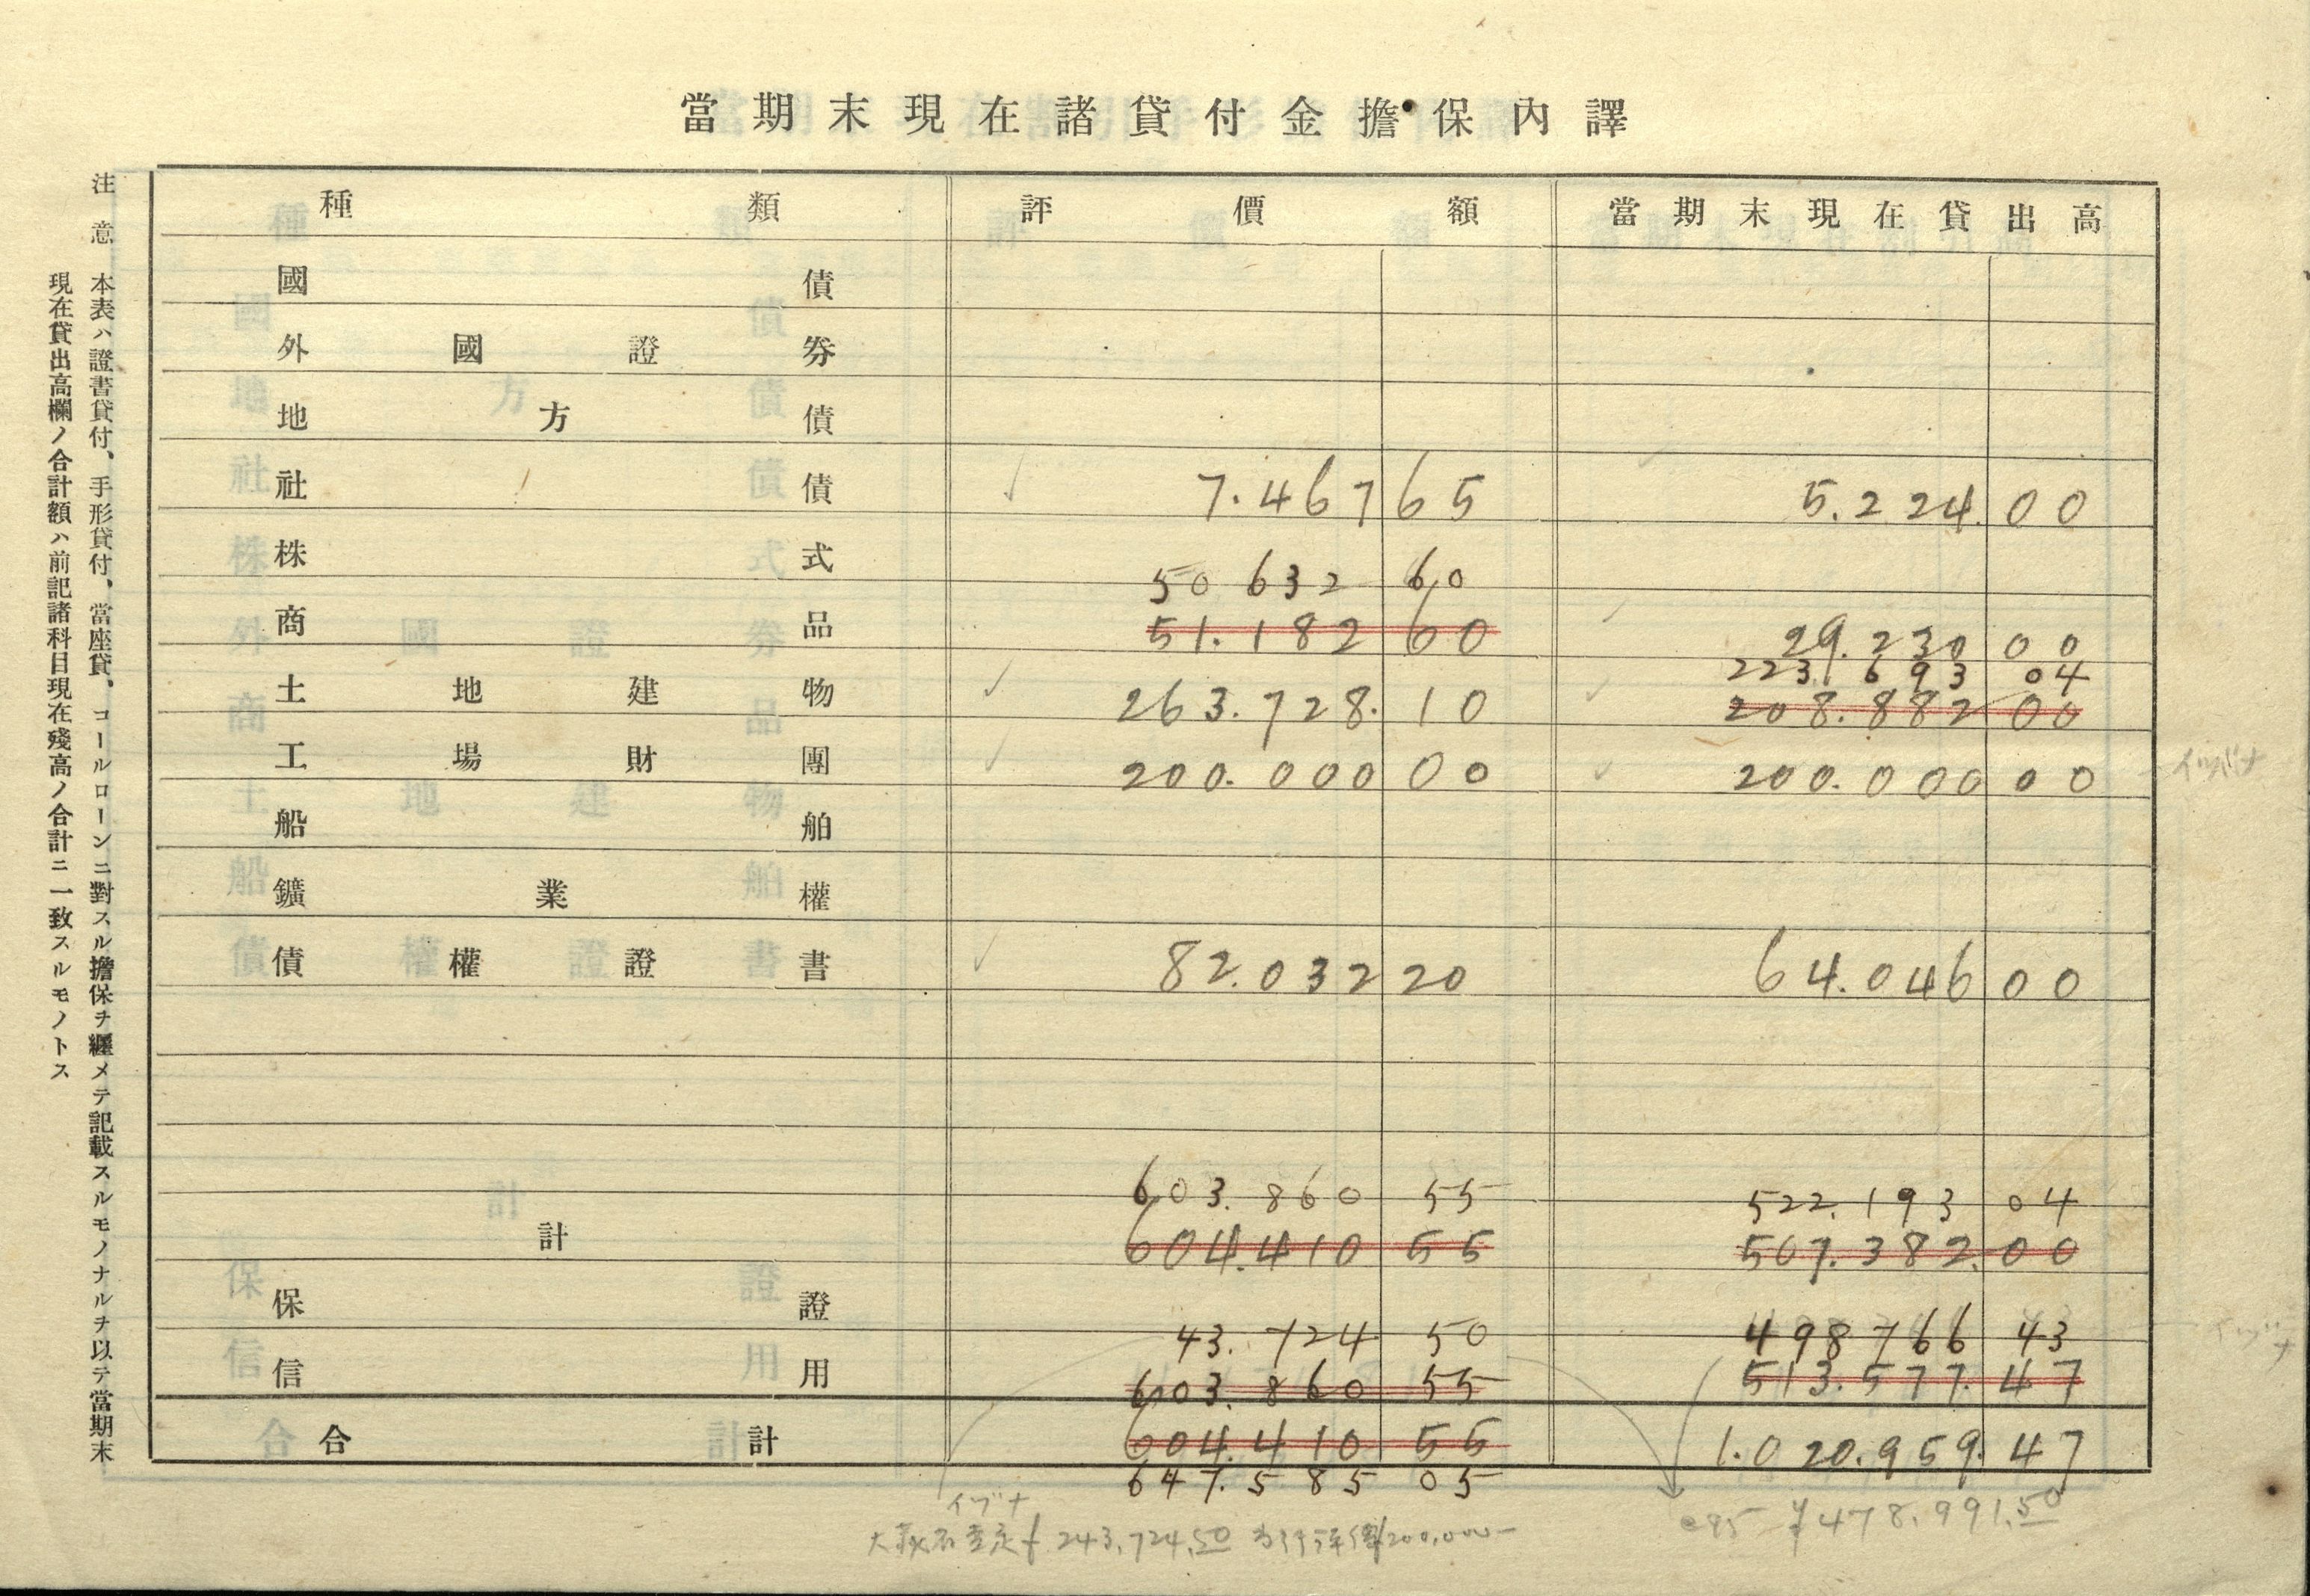 當期末現在諸貸付金擔保內譯
種類 評價額 當期末現在貸出高
國債
外國證券
地方債
社債 7.467 65 5.224.00
株式
50 632 60
商品 51.182 60 29.230 00
223.693 04
土地建物 263.728.10 208.882 00
工場財團 200.000 00 200.000 00
イヅナ
船舶
鑛業權
債權證書 82.032 20 64.046 00
603.860 55 522.193 04
計 604.410 55 507.382.00
保證
43.724 50 498 766 43
信用 603.860 55 513.577.47
合計 604.410 55 1.020.959.47
647.585 05
イヅナ
243,724.50 200,000—
¥478,991.50
注意 本表ハ證書貸付、手形貸付、當座貸、コールローンニ對スル擔保ヲ纒メテ記載スルモノナルヲ以テ當期末
現在貸出高欄ノ合計額ハ前記諸科目現在殘高ノ合計ニ一致スルモノトス